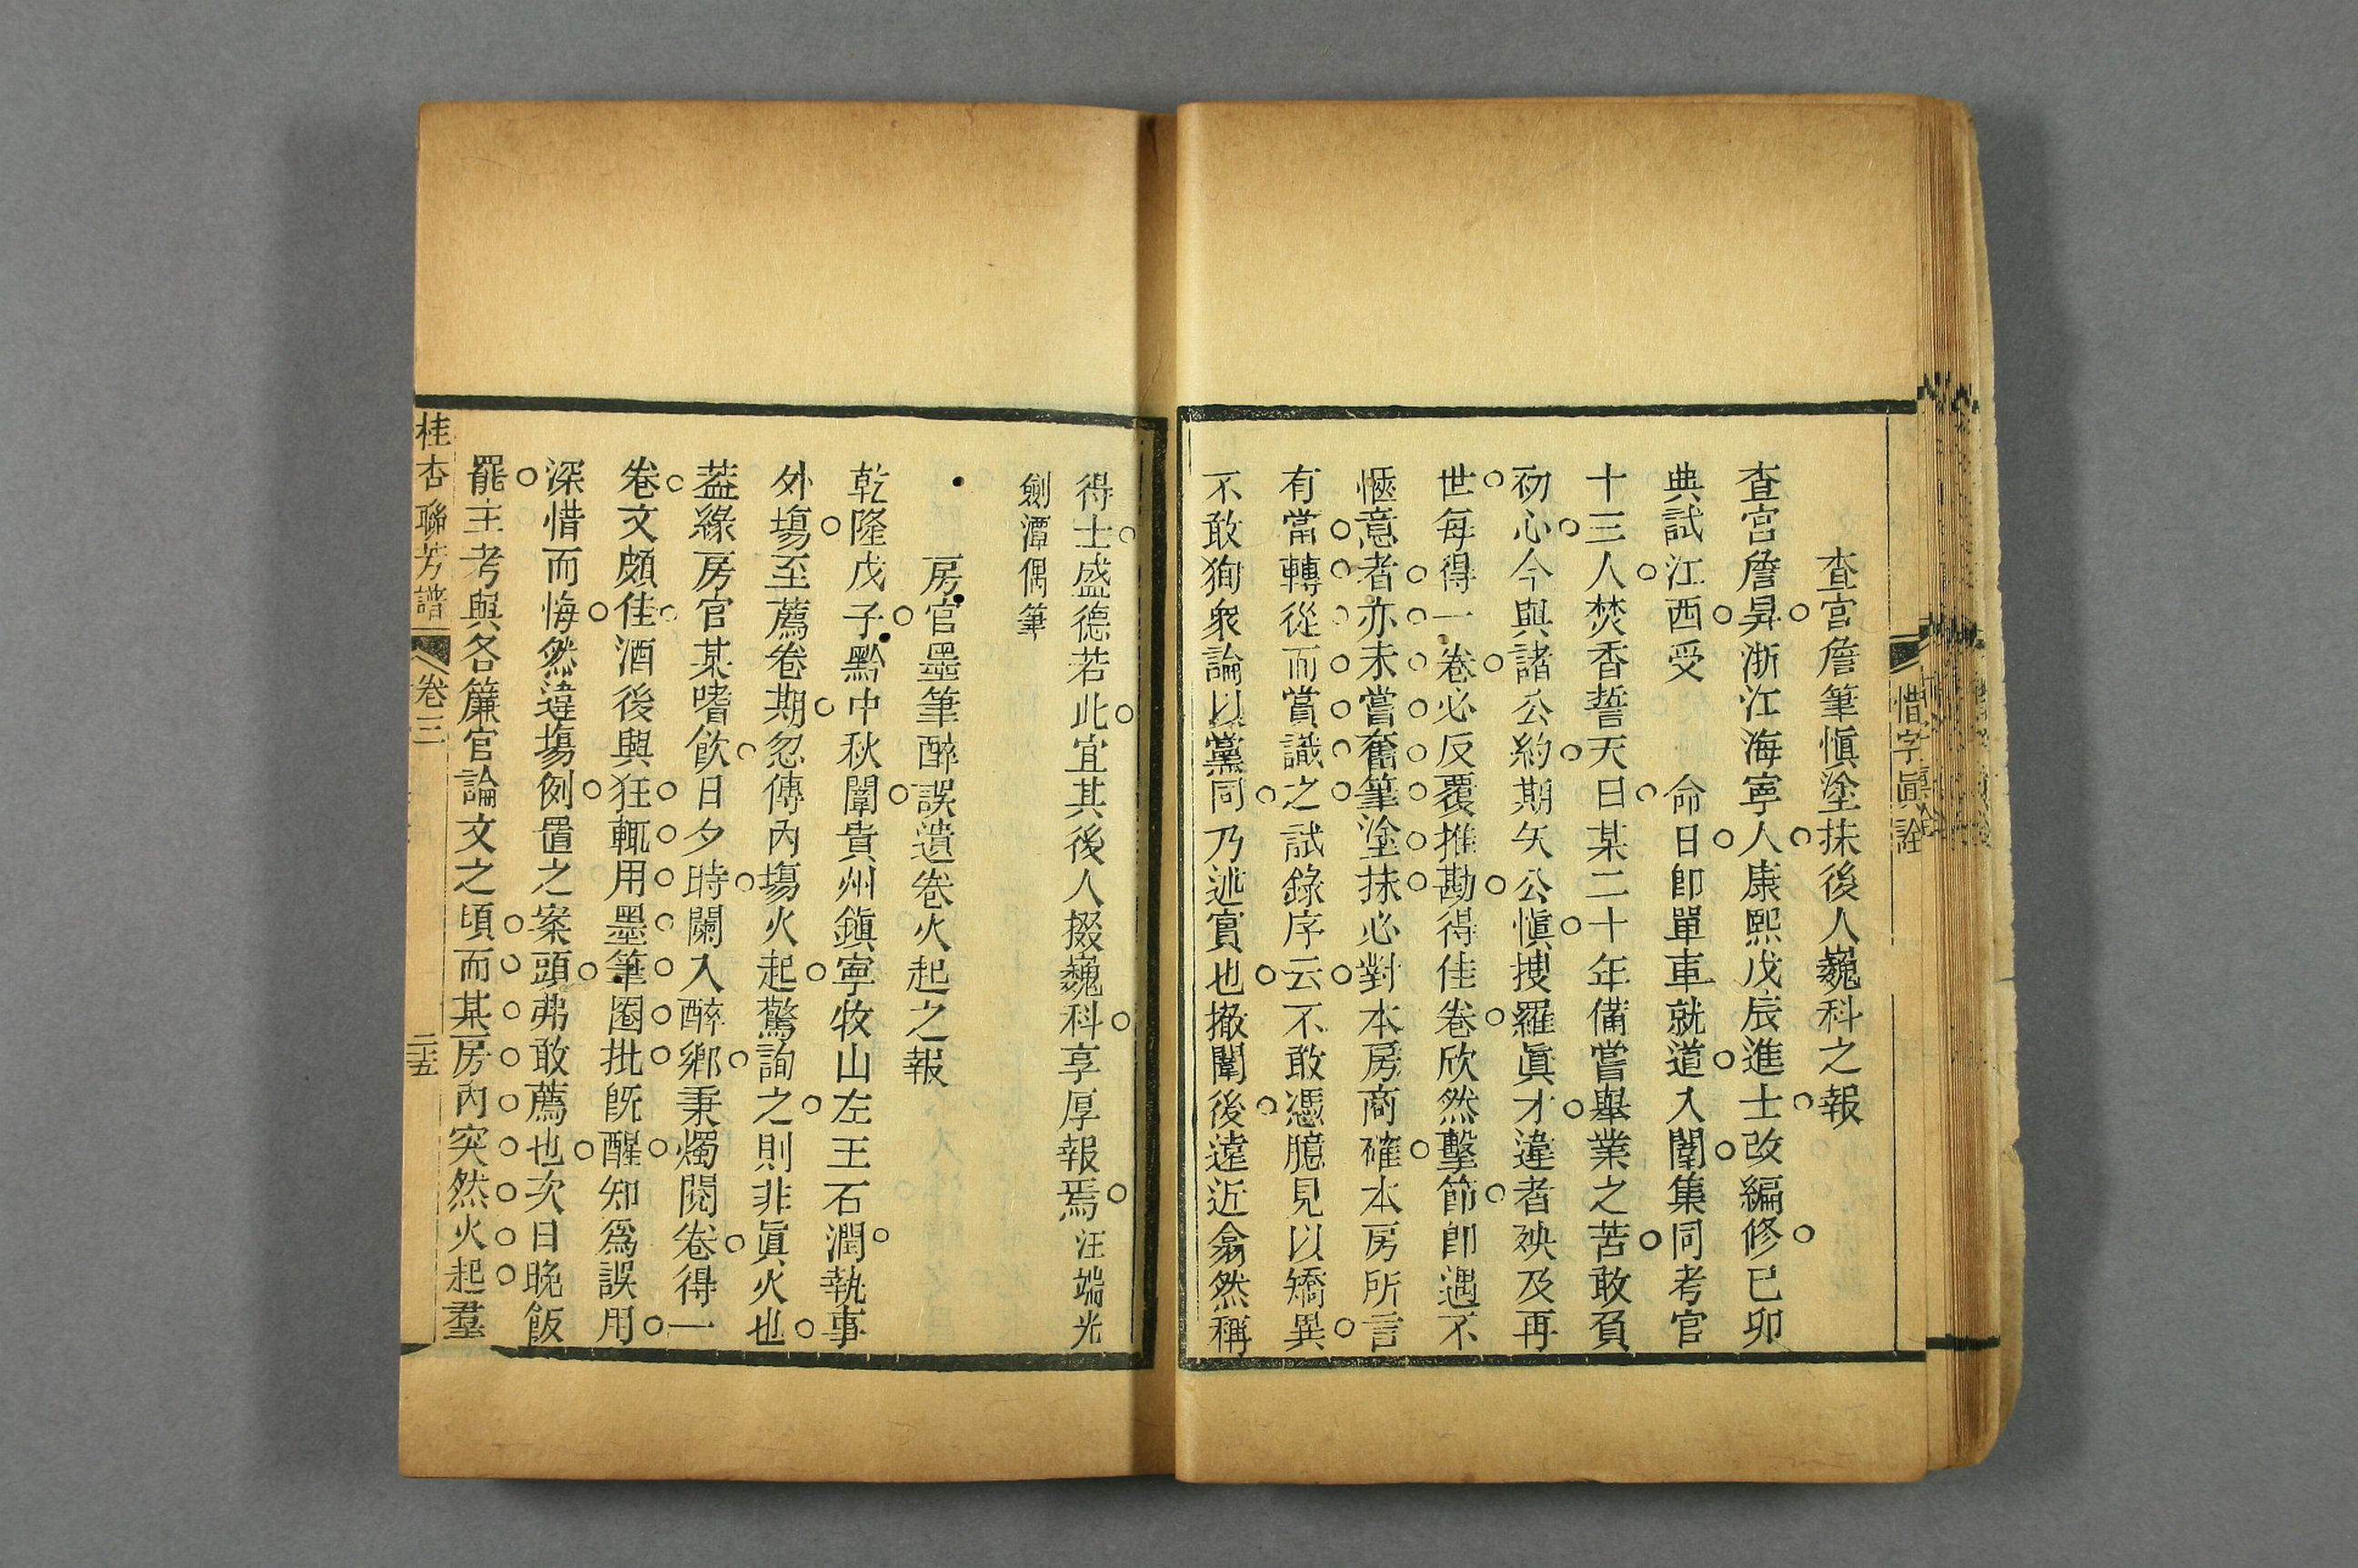 惜字眞詮
查宮詹筆愼塗抹後人巍科之報
查宮詹昇浙江海寧人康熙戊辰進士改編修已卯
典試江西受 命日卽單車就道入闈集同考官
十三人焚香誓天曰某二十年備嘗舉業之苦敢負
初心今與諸公約期矢公愼搜羅眞才違者殃及再
世每得一卷必反覆推勘得佳卷欣然擊節卽遇不
愜意者亦未嘗奮筆塗抹必對本房商確本房所言
有當轉從而賞識之試錄序云不敢憑臆見以矯異
不敢狥衆論以黨同乃述實也撤闈後遠近翕然稱
得士盛德若此宜其後人掇巍科享厚報焉汪端光
劍潭偶筆
房官墨筆醉誤遺卷火起之報
乾隆戊子黔中秋闈貴州鎮寧牧山左王石潤執事
外塲至薦卷期忽傳內塲火起驚詢之則非眞火也
葢緣房官某嗜飮日夕時闌入醉鄉秉燭閱卷得一
卷文頗佳酒後興狂輒用墨筆圈批旣醒知爲誤用
深惜而悔然違塲例置之案頭弗敢薦也次日晚飯
罷主考與各簾官論文之頃而某房內突然火起羣
桂杏聯芳譜 卷三 二十五